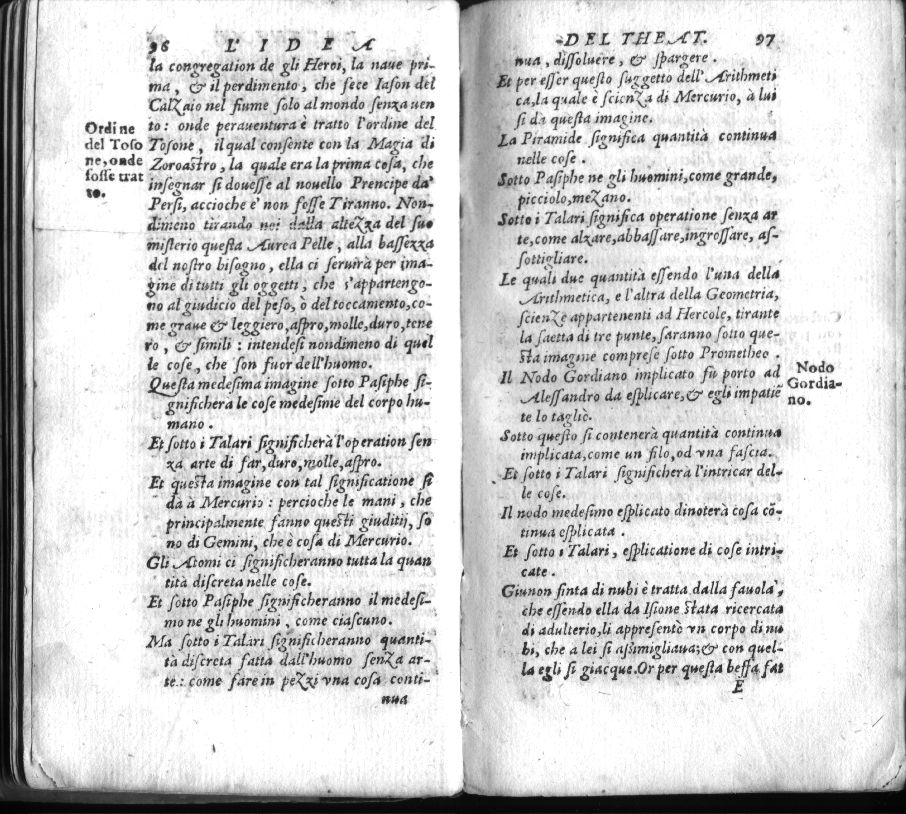 96 L'IDEA
la congregation de gli Heroi, la naue pri-
ma, & il perdimento, che fece Iason del
Calzaio nel fiume solo al mondo senza uen
to: onde perauentura è tratto l'ordine del
Tosone, il qual consente con la Magia di
Zoroastro, la quale era la prima cosa, che
insegnar si douesse al nouello Prencipe da'
Persi, accioche e' non fosse Tiranno. Non-
dimeno tirando noi dalla altezza del suo
misterio questa Aurea Pelle, alla bassezza
del nostro bisogno, ella ci seruirà per ima-
gine di tutti gli oggetti, che s'appartengo-
no al giudicio del peso, ò del toccamento, co-
me graue & leggiero, aspro, molle, duro, tene
ro, & simili: intendesi nondimeno di quel
le cose, che son fuor dell'huomo.
Questa medesima imagine sotto Pasiphe si-
gnificherà le cose medesime del corpo hu-
mano.
Et sotto i Talari significherà l'operation sen
za arte di far, duro, molle, aspro.
Et questa imagine con tal significatione si
dà à Mercurio: percioche le mani, che
principalmente fanno questi giuditij, so
no di Gemini, che è cosa di Mercurio.
Gli Atomi ci significheranno tutta la quan
tità discreta nelle cose.
Et sotto Pasiphe significheranno il medesi-
mo ne gli huomini, come ciascuno.
Ma sotto i Talari significheranno quanti-
tà discreta fatta dall'huomo senza ar-
te: come fare in pezzi vna cosa conti-
nua
Ordine
del Toso
ne, onde
fosse trat
to.
DEL THEAT. 97
nua, dissoluere, & spargere.
Et per esser questo suggetto dell'Arithmeti
ca, la quale è scienza di Mercurio, à lui
si dà questa imagine.
La Piramide significa quantità continua
nelle cose.
Sotto Pasiphe ne gli huomini, come grande,
picciolo, mezano.
Sotto i Talari significa operatione senza ar
te, come alzare, abbassare, ingrossare, as-
sottigliare.
Le quali due quantità essendo l'una della
Arithmetica, e l'altra della Geometria,
scienze appartenenti ad Hercole, tirante
la saetta di tre punte, saranno sotto que-
sta imagine comprese sotto Prometheo.
Il Nodo Gordiano implicato fù porto ad
Alessandro da esplicare, & egli impatiẽ
te lo tagliò.
Sotto questo si contenerà quantità continua
implicata, come un filo, od vna fascia.
Et sotto i Talari significherà l'intricar del-
le cose.
Il nodo medesimo esplicato dinoterà cosa cõ
tinua esplicata.
Et sotto i Talari, esplicatione di cose intri-
cate.
Giunon finta di nubi è tratta dalla fauola,
che essendo ella da Isione stata ricercata
di adulterio, li appresentò vn corpo di nu
bi, che a lei si assimigliaua; & con quel-
la egli si giacque. Or per questa beffa fat
E
Nodo
Gordia-
no.